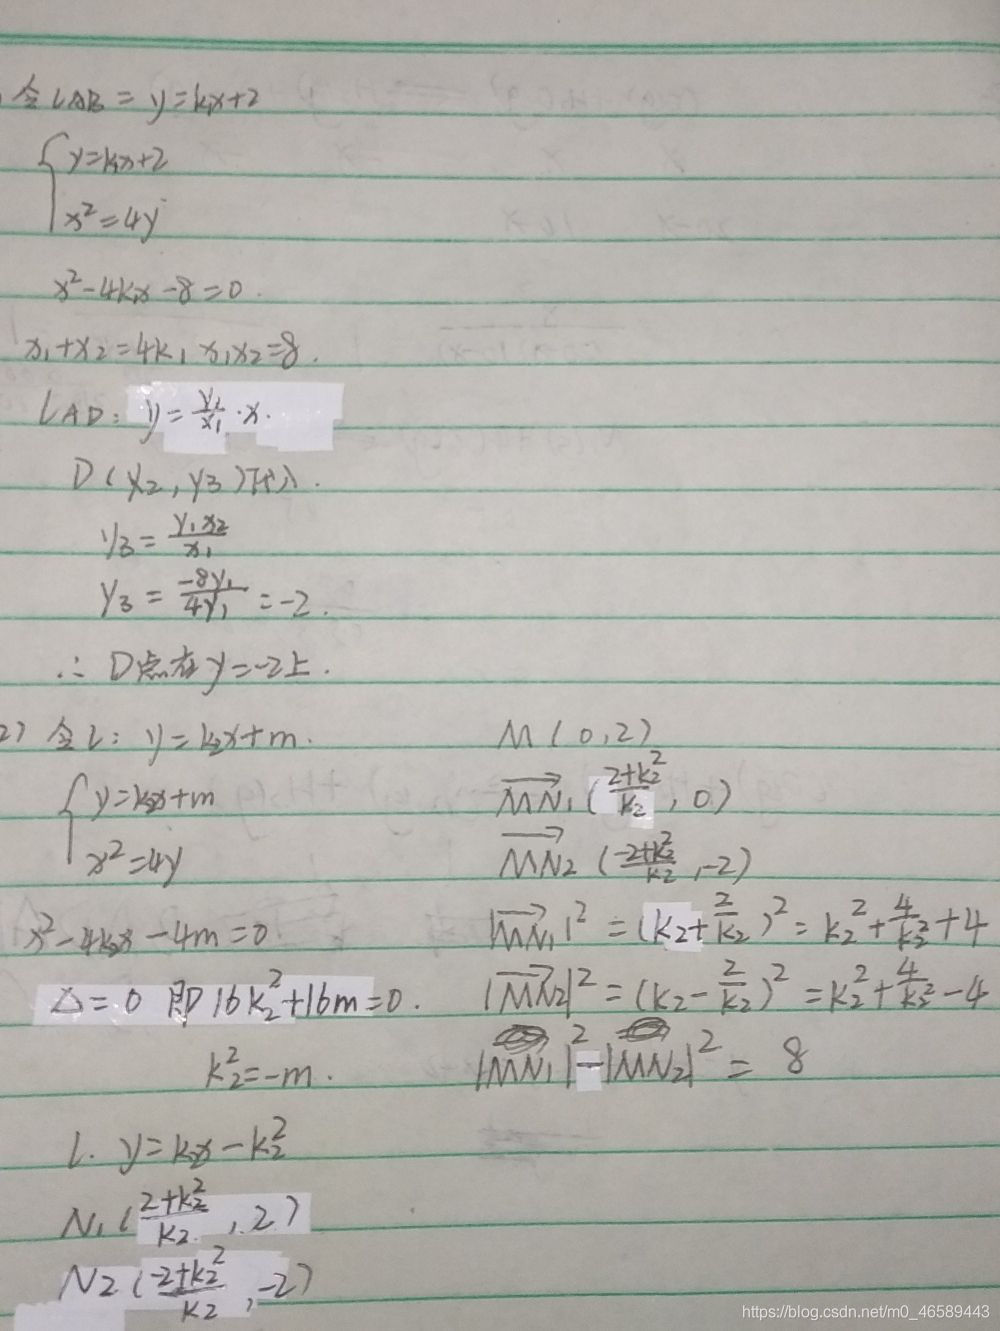 令 l AB = y=k₁x+2
{ y=k₁x+2
x²=4y
x²-4k₁x-8=0.
x₁+x₂=4k₁ x₁x₂=8.
l AD: y=y₁/x₁·x.
D(x₂,y₃)代入.
y₃=y₁x₂/x₁
y₃=-8y₁/4y₁=-2.
∴ D点在y=-2上.
2) 令l: y=k₂x+m.
{ y=k₂x+m
x²=4y
x²-4k₂x-4m=0
Δ=0 即16k₂²+16m=0.
k₂²=-m.
l. y=k₂x-k₂²
N₁(2+k₂²/k₂,2)
N₂(-2+k₂²/k₂,-2)
M(0,2)
→MN₁(2+k₂²/k₂,0)
→MN₂(-2+k₂²/k₂,-2)
|→MN₁|²=(k₂+2/k₂)²=k₂²+4/k₂²+4
|→MN₂|²=(k₂-2/k₂)²=k₂²+4/k₂²-4
|MN₁|²-|MN₂|²=8
https://blog.csdn.net/m0_46589443